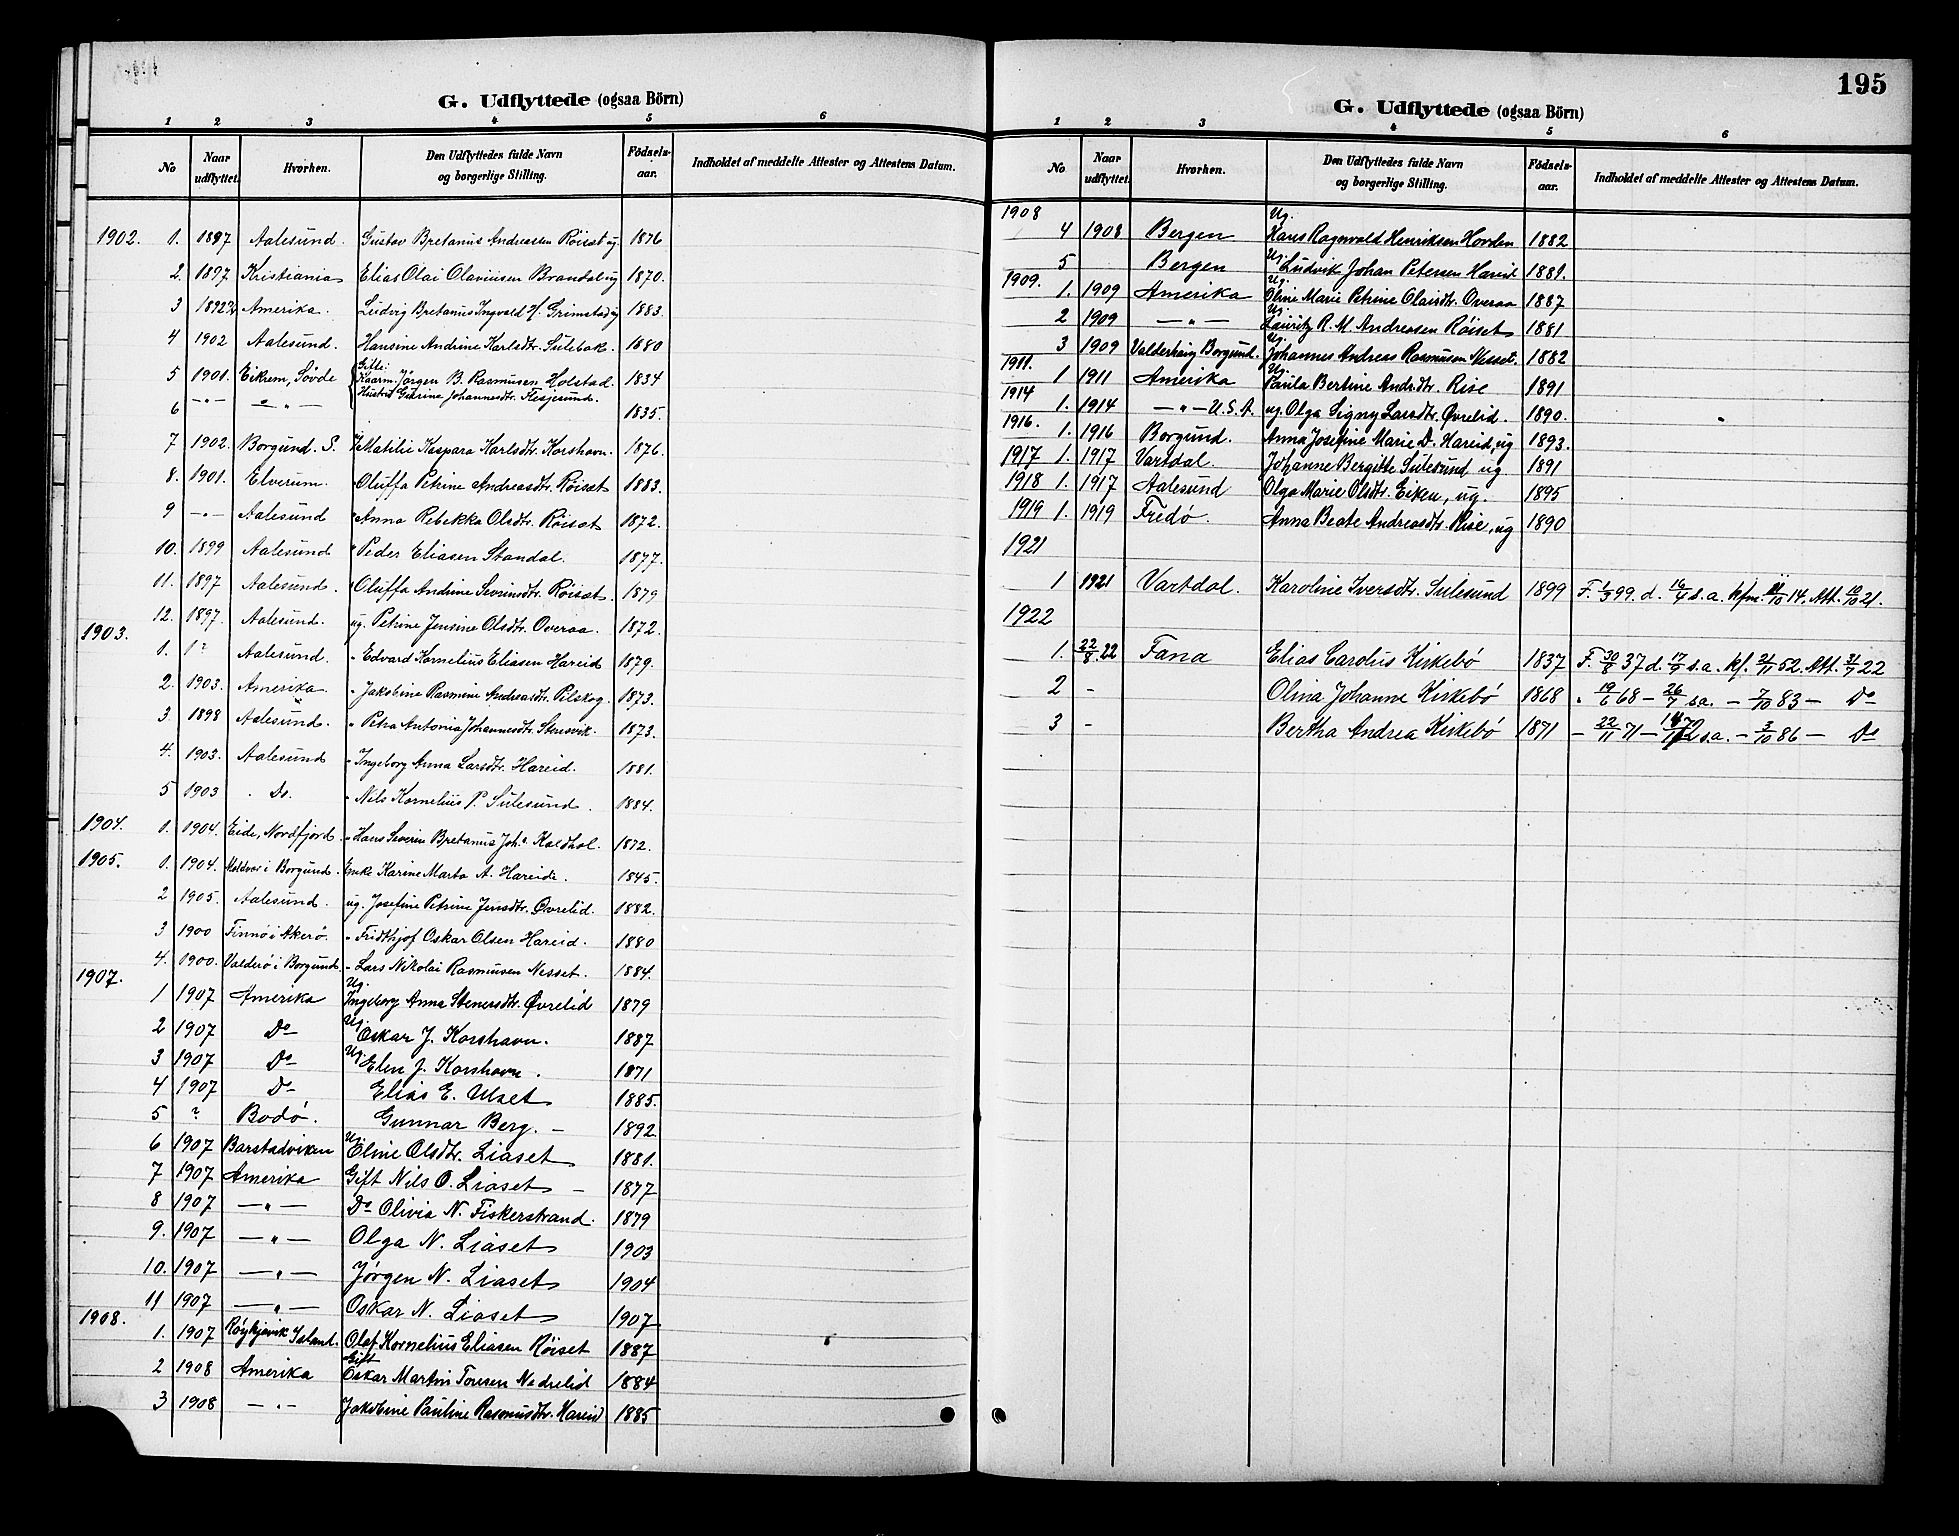 G. Udflyttede (ogsaa Börn)
1 2 3 4 5 6
No Naar udflyttet. Hvorhen. Den Udflyttedes fulde Navn og borgerlige Stilling. Fødsels-aar. Indholdet af meddelte Attester og Attestens Datum.
1902. 1. 1897 Aalesund. Gustav Bretanus Andreassen Röiset ug 1876
2. 1897. Kristiania Elias Olai Olaviusen Brandal ug 1870.
3 Amerika. Ludvig Bretanus Ingvald Grimstad ug 1883.
4 1902 Aalesund. Hansine Andrine Karlsdtr. Sulebak. 1880
5 1901. Eikrem, Sövde Gifte: Kaarm. Jørgen B. Rasmusen Holstad. 1834
6 -"- — " — Hustru Johannesdtr. Flesjesund. 1835.
7 1902. Borgund. S. Matilie Kaspara Karlsdtr. Korshavn. 1876.
8. 1901. Elverum. " Oluffa Petrine Andreasdtr. Röiset 1883.
9 -"- Aalesund " Anna Rebekka Olsdtr. Röiset 1872.
10. 1899 Aalesund " Peder Eliasen Standal. 1877.
11. 1897 Aalesund. " Oluffa Andrine Sevrinsdtr. Röiset. 1879
12. 1897. Aalesund. ug. Petrine Jensine Olsdtr. Overaa. 1872.
1903.
1. ? Aalesund. " Edvard Kornelius Eliasen Hareid 1879.
2. 1903. Amerika " Jakobine Rasmine Andreasdtr. Pilskog. 1873.
3. 1898 Aalesund. " Petra Antonia Johannesdtr. 1873.
4. 1903. Aalesund " Ingeborg Anna Larsdtr. Hareid. 1881.
5 1903 " Do. " Nils Kornelius P. Sulesund. 1884.
1904. 1. 1904. Eide, Nordfjord. " Hans Severin Bretanus Joh.s. Koldhol. 1872.
1905. 1. 1904. Moldvær i Borgund. Enke Karine Marta A. Hareide. 1845.
2 1905. Aalesund. ug. Josefine Petrine Jensdtr. Øvrelid. 1882.
3 1900 Finnö i Akerö. " Fridthjof Oskar Olsen Hareid. 1880
4. 1900. Valderö i Borgund. " Lars Nikolai Rasmusen Nesset. 1884.
1907.
1 1907 Amerika Ug. Ingeborg Anna Stenersdtr. Øvrelid 1879
2 1907 Do Ug. Oskar J. Korshavn. 1887
3 1907 Do Ug. Elen J. Korshavn. 1871
4 1907 Do Elias E. Ulset 1885.
5 ? Bodö. Gunnar Berg. — 1892
6 1907 Barstadviken Ug. Eline Olsdtr. Liaset 1881.
7 1907 Amerika Gift Nils O. Liaset — 1877
8 1907 — " — Do Olivia N. Fiskerstrand. 1879
9. 1907 — " — Olga N. Liaset 1903
10. 1907 — " — Jörgen N. Liaset 1904
11 1907 — " — Oskar N. Liaset 1907
1908.
1. 1907 Röykjavik Island. Olaf Kornelius Eliasen Röiset 1887
2 1908 Amerika Gift Oskar Martin Tonsen Nedrelid 1884
3 1908 — " — Jakobine Pauline Rasmusdtr. Hareid 1885
195
G. Udflyttede (ogsaa Börn)
1 2 3 4 5 6
No Naar udflyttet. Hvorhen. Den Udflyttedes fulde Navn og borgerlige Stilling. Fødsels-aar. Indholdet af meddelte Attester og Attestens Datum.
1908
4 1908 Bergen Ug. Hans Ragnvald Henriksen Hovden 1882
5 Bergen Ug. Ludvik Johan Petersen Hareid 1889.
1909.
1. 1909 Amerika Ug. Oline Marie Petrine Olaisdtr. Overaa 1887
2 1909 — " — Ug. Lauritz R. M. Andreasen Röiset 1881
3 1909 Valderhaug Borgund. Ug. Johannes Andreas Rasmusen Nesset. 1882
1911.
1 1911 Amerika Ug. Paula Bertine Andr.dtr. Rise 1891
1914
1. 1914 — " — U.S.A. ug. Olga Signy Larsdtr. Øvrelid. 1890.
1916.
1. 1916 Borgund. Anna Josefine Marie D. Hareid, ug 1893.
1917 1. 1917 Vartdal. Johanne Bergitte Sulesund ug 1891
1918 1. 1917 Aalesund Olga Marie Olsdtr. Eiken, ug. 1895
1919 1. 1919 Fredö. Anna Beate Andreasdtr. Rise, ug 1890
1921
1 1921 Vartdal. Karoline Iversdtr. Sulesund 1899 F. 1/3 99. d. 16/4 s.a. kfm. 11/10 14. Att. 10/10 21.
1922
1. 22/8 22 Fana Elias Carolus Kirkebö 1837 F. 30/8 37 d. 17/9 s.a. kf. 21/11 52. Att. 31/7 22
2 - Olina Johanne Kirkebö 1868 " 19/6 68 — 26/7 s.a. — 7/10 83 — Do
3 - Bertha Andrea Kirkebö 1871 — 22/11 71 — — 3/10 86 — Do